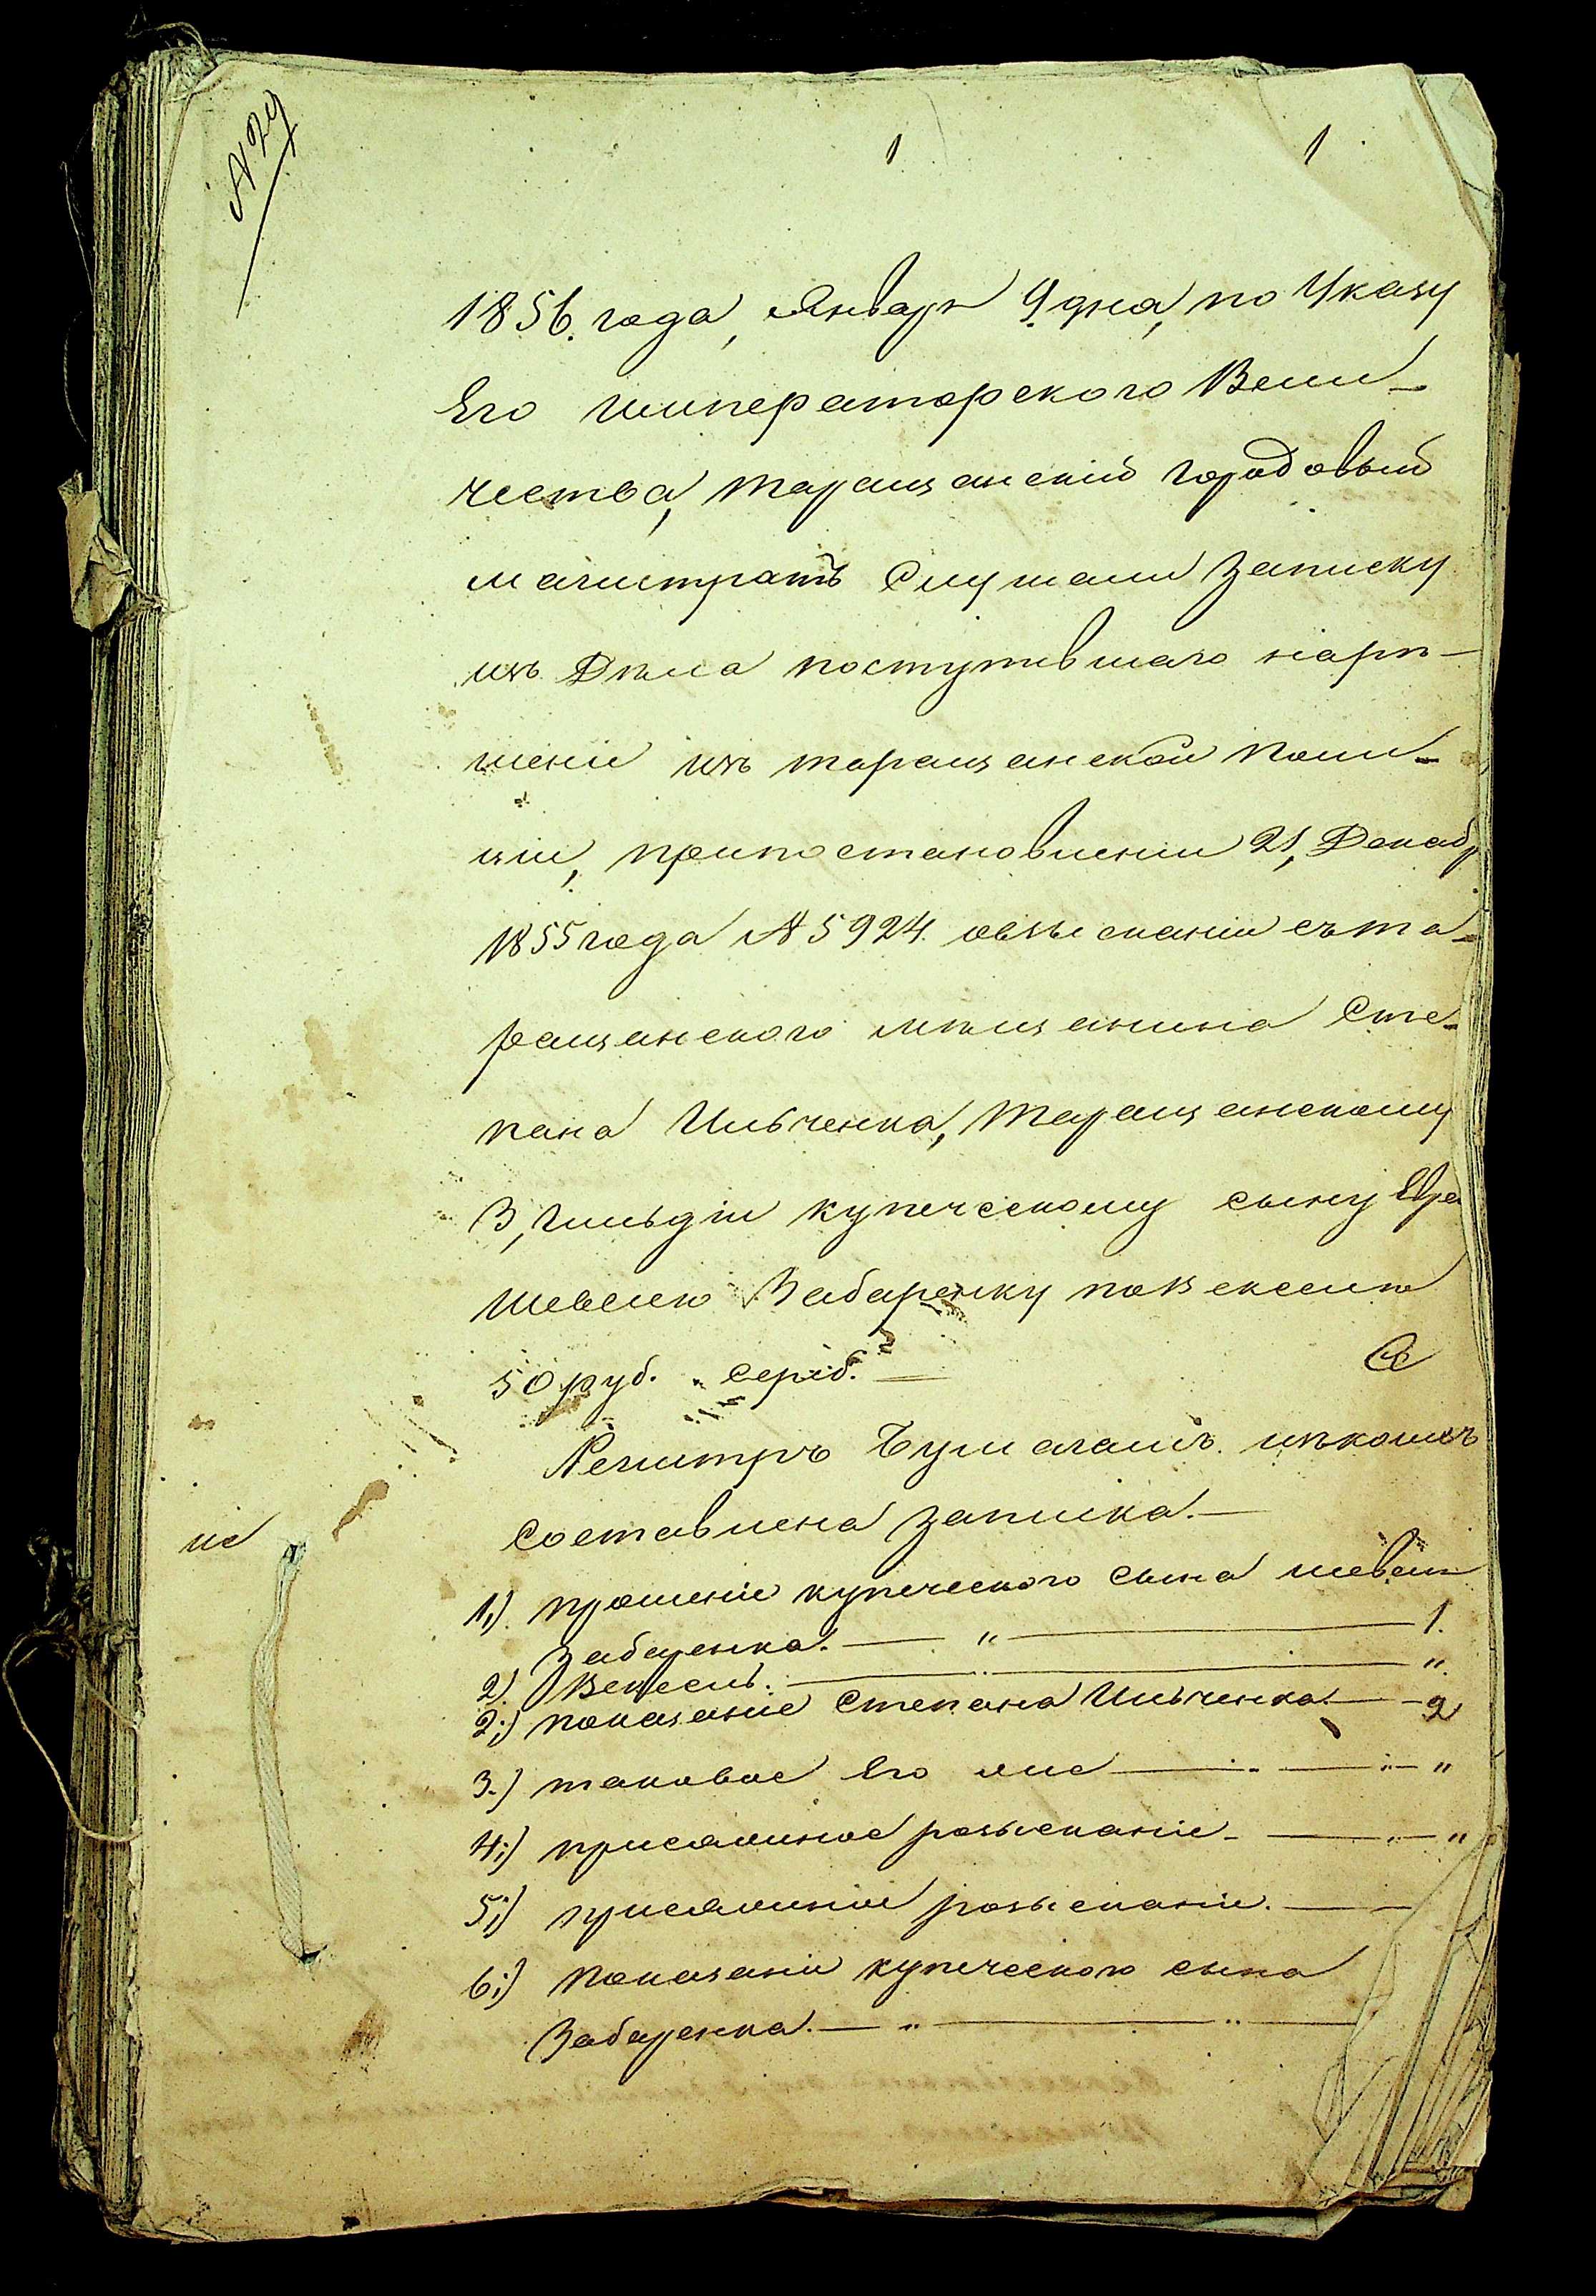 № 24
1 1
1856. года, Января 9. дня, по Указу
Его императорского Вели-
чества, Таращанский городовый
магистратъ Слушали записку
изъ Дѣла поступившаго нарѣ-
шеніе изъ таращанской поли-
ціи, припостановленіи 21, Декабр
1855 года № 5924. овзысканіи съта-
ращанского мѣщанина Сте-
пана Ильченка, Таращанскому
3, гильдіи купеческому сыну Евре
Шевелю Забаренку повекселю
50 руб. сереб. —
Регистръ бумагамъ изъкоихъ
составлена записка. —
1,) прошеніе купеческого сына шевеля
Забаренка. — " — 1.
2). Вексель. — "
2;) показаніе Степана Ильченка — 2
3.) таковое Его же — "
4;) присяжное розысканіе — "
5;) присяжніе розысканіе. —
6;) показаніе купеческого сына
Забаренка. — " — " —